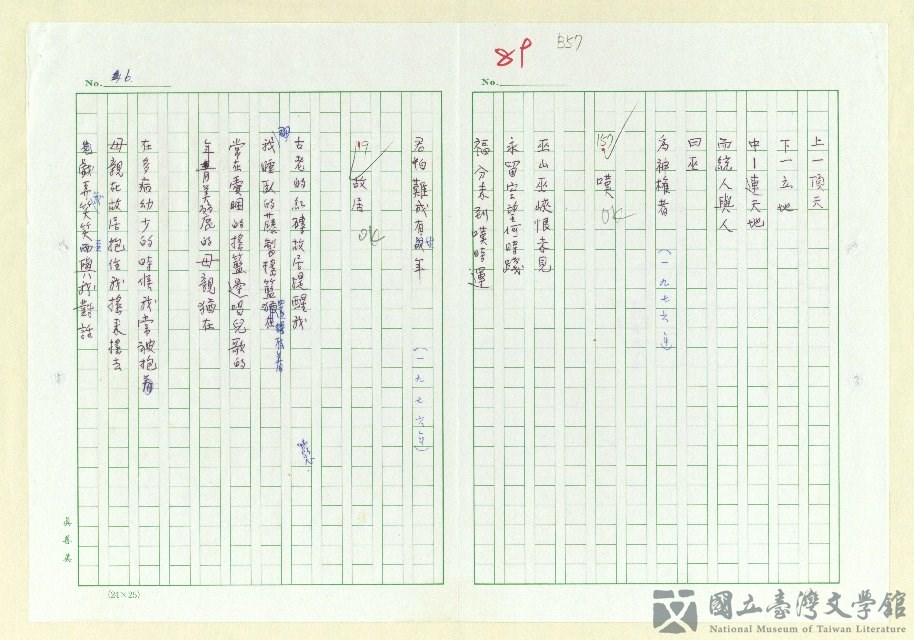 B57
89
No.
上一頂天
下一立地
中|連天地
而統人與人
曰巫
為被權者
(一九七六年)
157
嘆
OK
巫山巫峽恨未見
永留空望何時踐
福分未到嘆時運
No. 46
君怕難成有年
(一九七六年)
19
故居
OK
古老的紅磚故居提醒我
我睡臥的藤製搖籃
當在愛睏的搖籃邊唱兒歌的
年青美麗的母親猶在
在多病幼少的時候我常被抱著
母親在故居抱住我搖來搖去
戲弄笑笑而與我對話
(24×25)
國立臺灣文學館
National Museum of Taiwan Literature